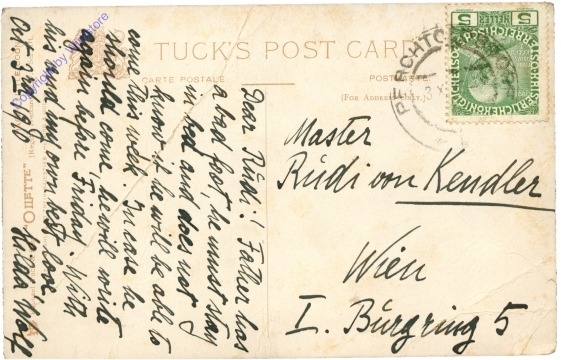 TUCK'S POST CARD
CARTE POSTALE
POSTKARTE
(FOR ADDRESS ONLY.)
Dear Rudi! Father has
a bad foot, he must stay
in bed and does not
know if he will be able to
come this week. In case he
should come, he will write
again before Friday. With
his and my own best love
Hilda Wolf
Oct. 5th 1908
Master
Rudi von Kendler
Wien
I. Burgring 5
PERCHTOLDSDORF
5
5
"OILETTE"
Copyright by